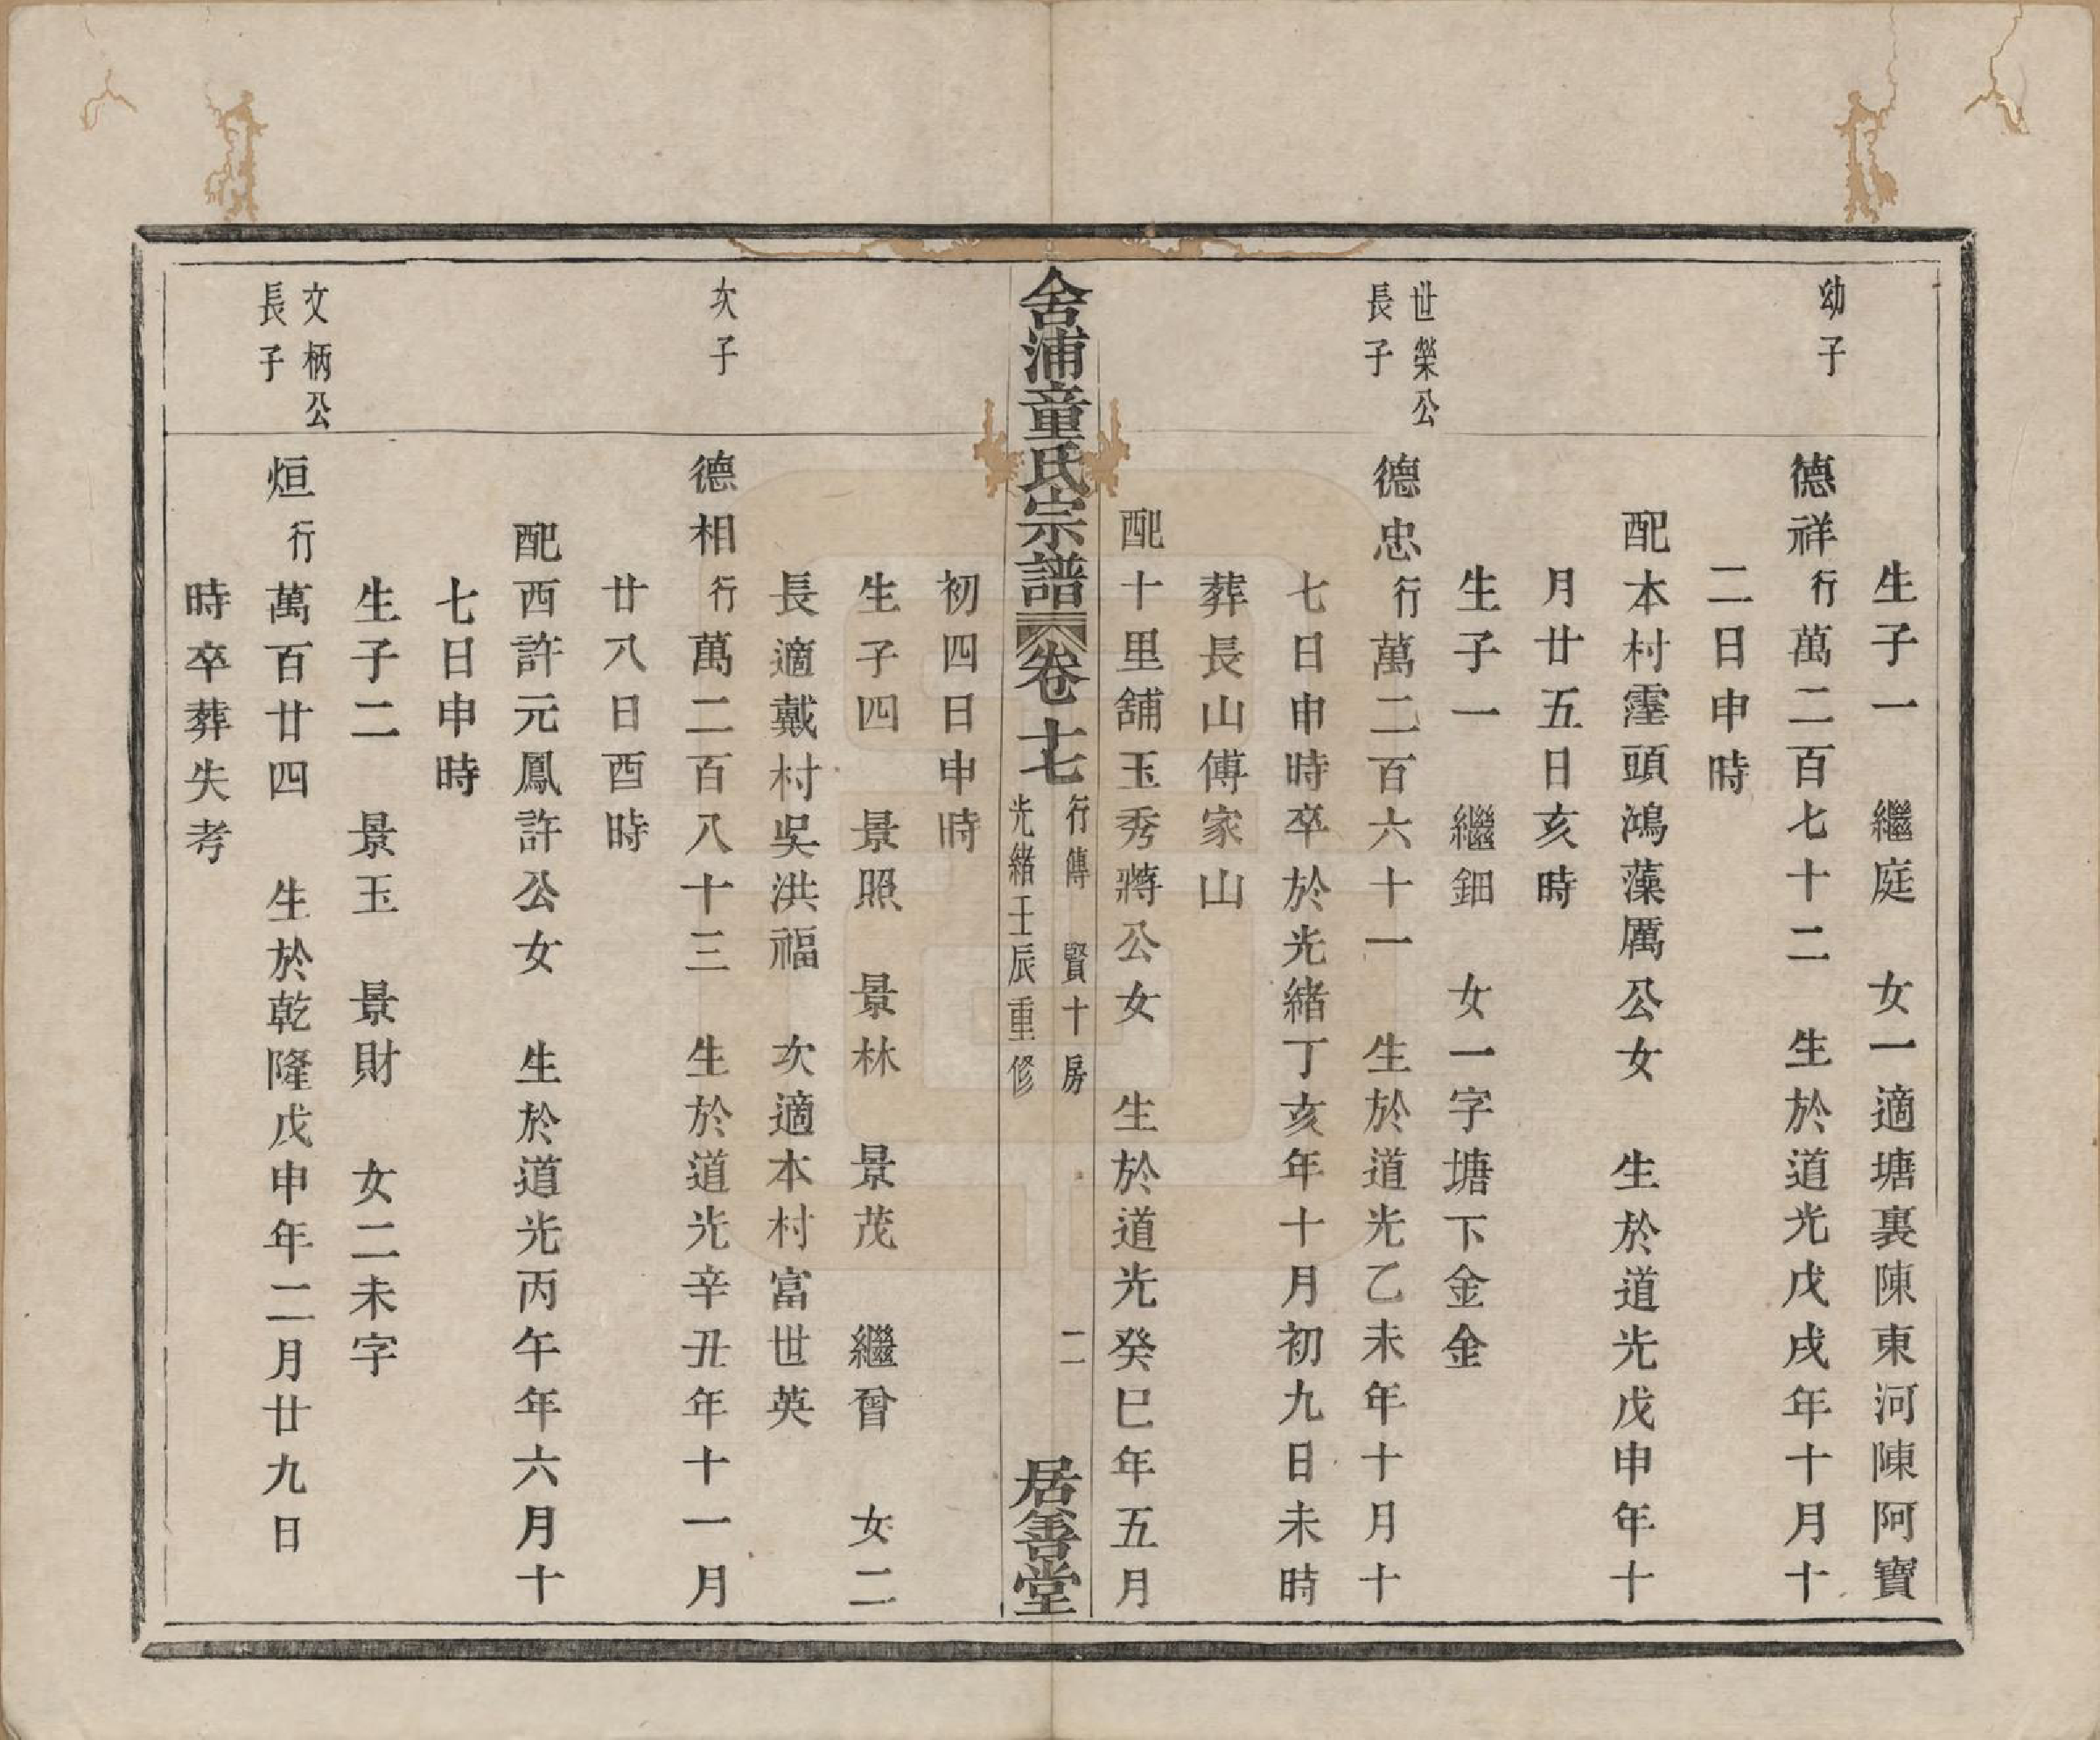 生子一　繼庭　女一適塘裏陳東河陳阿寶
幼子
德祥行萬二百七十二　生於道光戊戌年十月十
二日申時
配本村霪頭鴻藻厲公女　生於道光戊申年十
月廿五日亥時
生子一　繼鈿　女一字塘下金金
世榮公
長子
德忠行萬二百六十一　生於道光乙未年十月十
七日申時卒於光緒丁亥年十月初九日未時
葬長山傅家山
配十里舖玉秀蔣公女　生於道光癸巳年五月
舍浦童氏宗譜　卷十七　行傳　賢十房　二　居善堂
光緒壬辰重修
初四日申時
生子四　景照　景林　景茂　繼曾　女二
長適戴村吳洪福　次適本村富世英
次子
德相行萬二百八十三　生於道光辛丑年十一月
廿八日酉時
配西許元鳳許公女　生於道光丙午年六月十
七日申時
生子二　景玉　景財　女二未字
文柄公
長子
烜行萬百廿四　生於乾隆戊申年二月廿九日
時卒葬失考